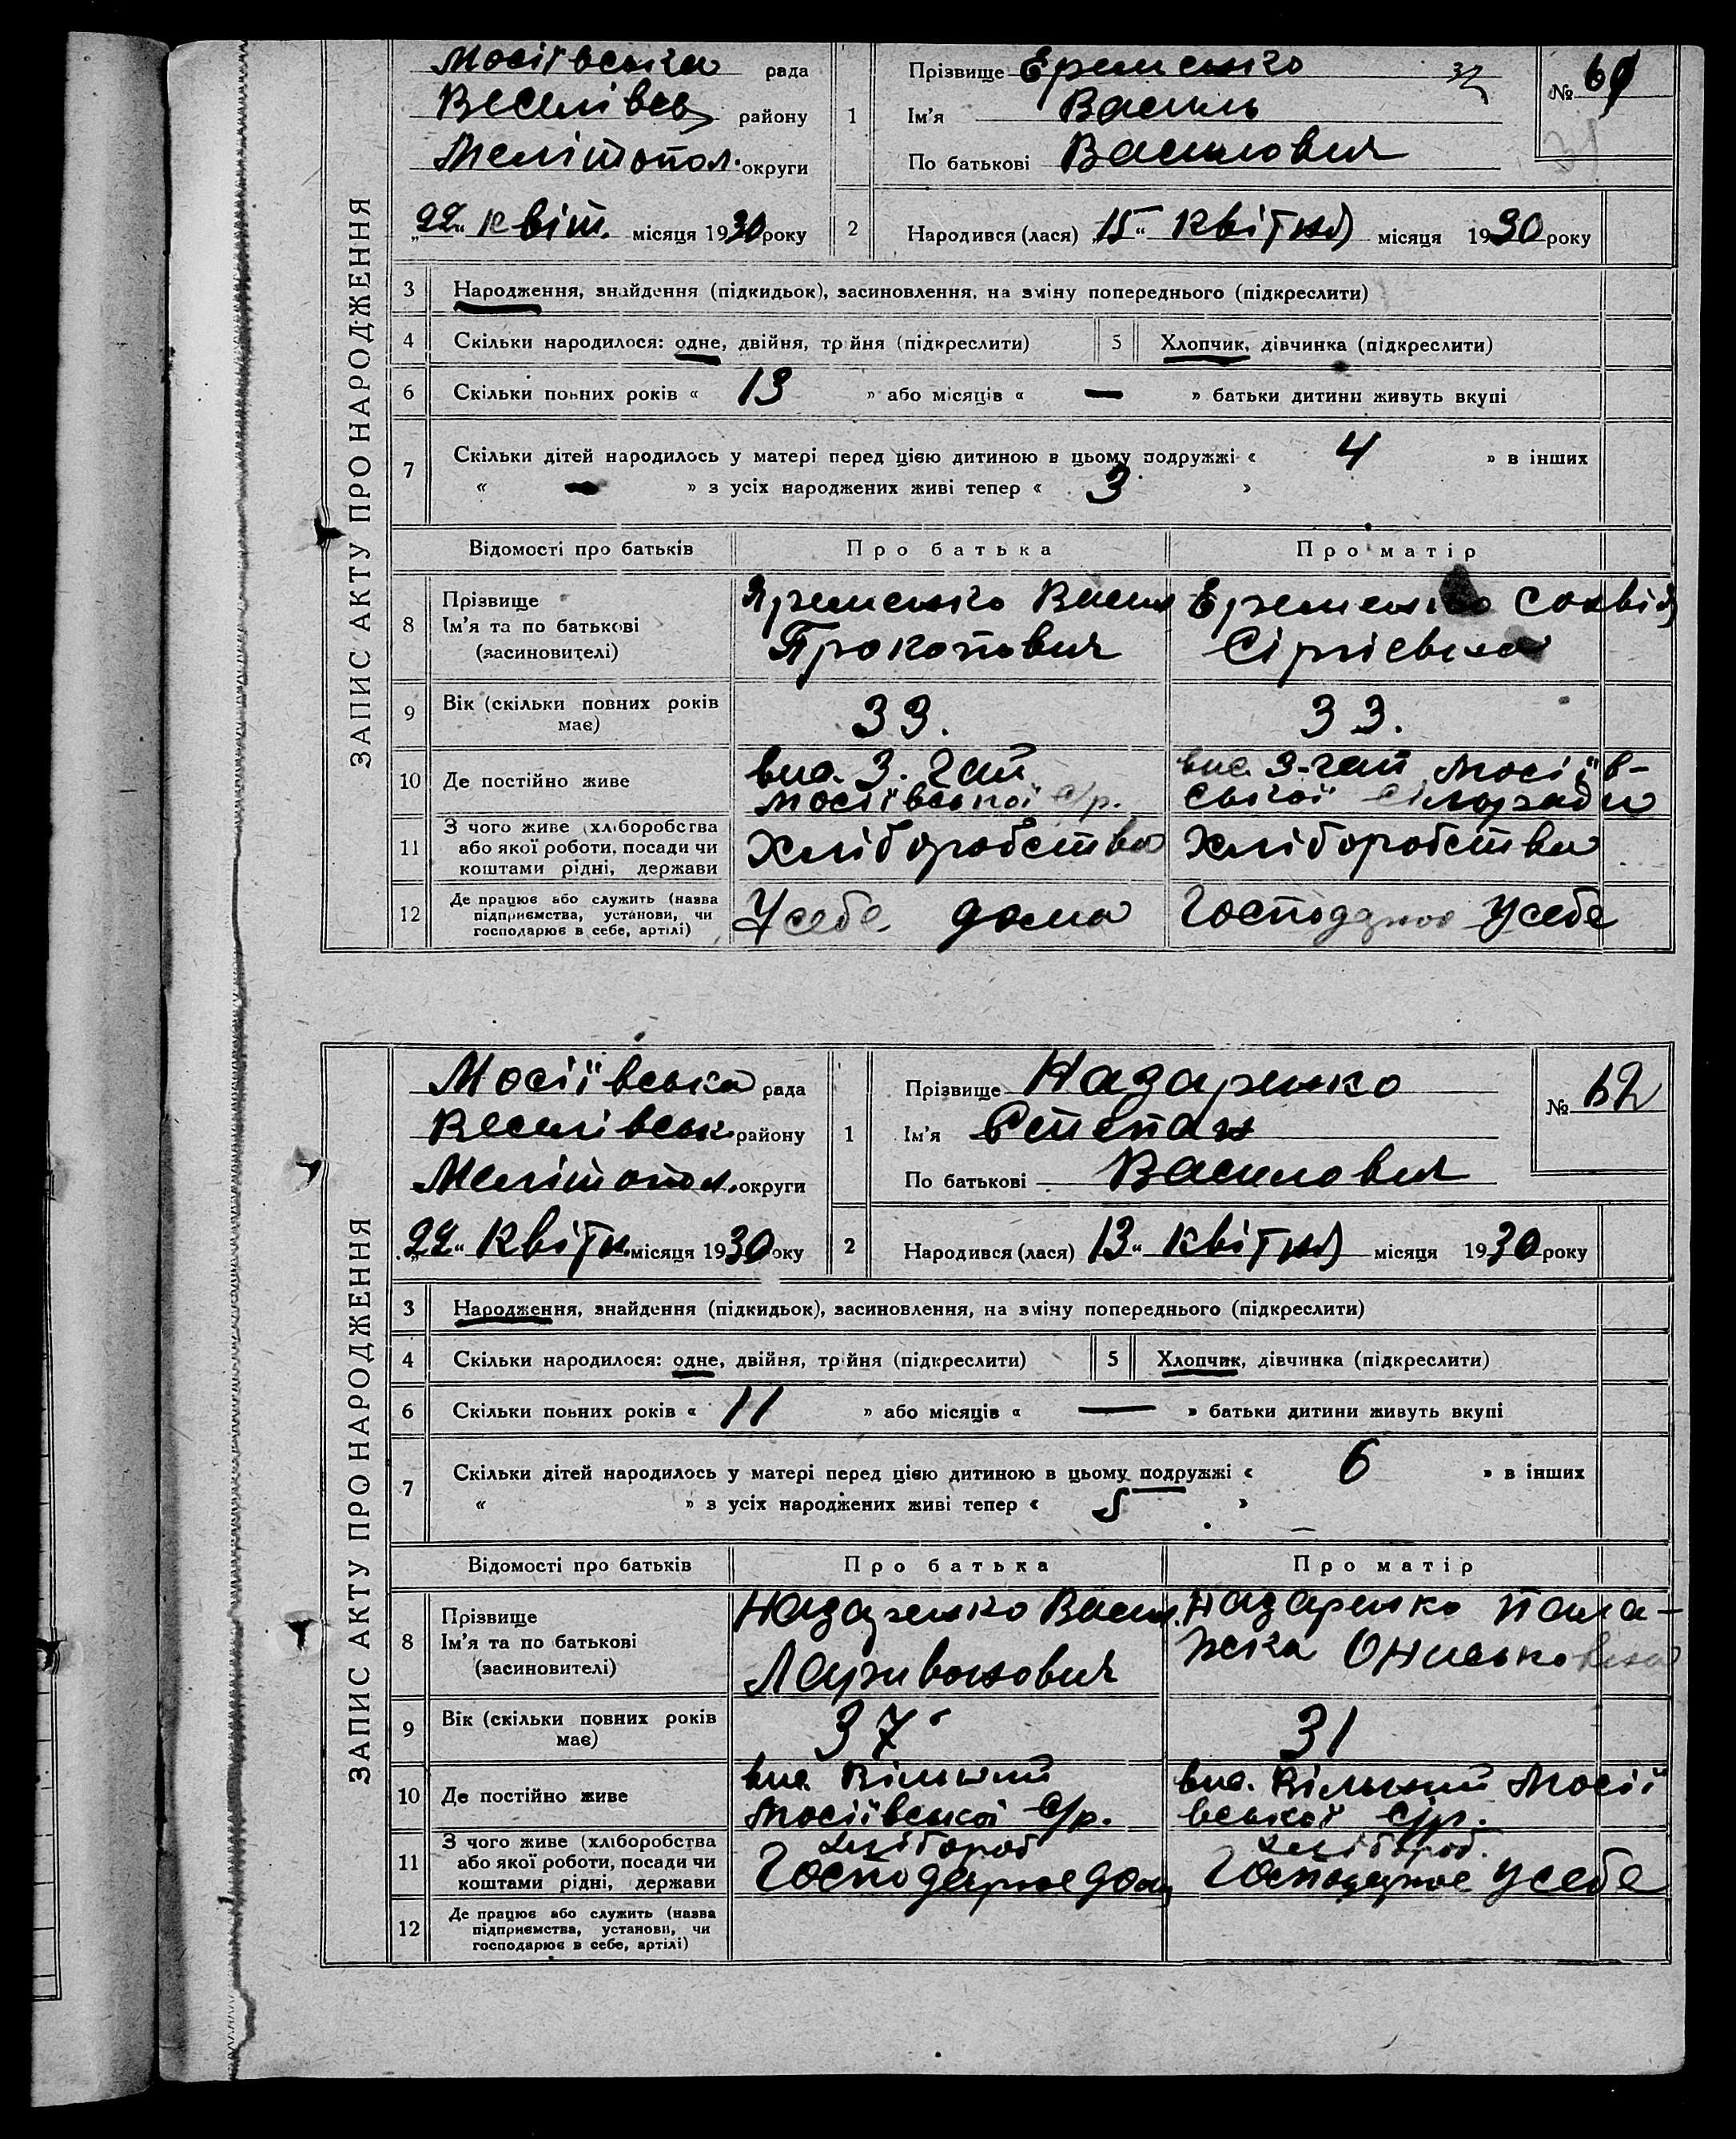 ЗАПИС АКТУ ПРО НАРОДЖЕННЯ
Мосіївська рада
Веселівськ району
Мелітопол. округи
„22“ квіт. місяця 1930 року
1 Прізвище Еременко
Ім'я Василь
По батькові Василович
№ 61
31
2 Народився (лася) „15“ квітня місяця 1930 року
3 Народження, знайдення (підкидьок), засиновлення, на зміну попереднього (підкреслити)
4 Скільки народилося: одне, двійня, трійня (підкреслити) 5 Хлопчик, дівчинка (підкреслити)
6 Скільки повних років « 13 » або місяців « — » батьки дитини живуть вкупі
7 Скільки дітей народилось у матері перед цією дитиною в цьому подружжі « 4 » в інших
« — » з усіх народжених живі тепер « 3 »
Відомості про батьків Про батька Про матір
8 Прізвище Ім'я та по батькові (засиновителі)
Яременко Васил Прокопович
Еременко Сохвія Сіргієвна
9 Вік (скільки повних років має) 33. 33.
10 Де постійно живе
вис. З. Гай Мосіївської с/р.
вис. З-гай Мосіївської сільради
11 З чого живе (хліборобства або якої роботи, посади чи коштами рідні, держави
Хліборобства Хліборобства
12 Де працює або служить (назва підприємства, установи, чи господарює в себе, артілі)
У себе дома Господарює у себе
ЗАПИС АКТУ ПРО НАРОДЖЕННЯ
Мосіївська рада
Веселівськ. району
Мелітопол. округи
„22“ Квітн. місяця 1930 року
1 Прізвище Назаренко
Ім'я Степан
По батькові Василович
№ 62
2 Народився (лася) „13“ квітня місяця 1930 року
3 Народження, знайдення (підкидьок), засиновлення, на зміну попереднього (підкреслити)
4 Скільки народилося: одне, двійня, трійня (підкреслити) 5 Хлопчик, дівчинка (підкреслити)
6 Скільки повних років « 11 » або місяців « — » батьки дитини живуть вкупі
7 Скільки дітей народилось у матері перед цією дитиною в цьому подружжі « 6 » в інших
« » з усіх народжених живі тепер « 5 »
Відомості про батьків Про батька Про матір
8 Прізвище Ім'я та по батькові (засиновителі)
Назаренко Васил. Ларивонович
Назаренко Палажка Ониськовна
9 Вік (скільки повних років має) 37 31
10 Де постійно живе
вис. Вільний Мосіївської с/р.
вис. Вільний Мосіївської с/р.
11 З чого живе (хліборобства або якої роботи, посади чи коштами рідні, держави
хлібороб Господарює дома
хлібороб. Господарює у себе
12 Де працює або служить (назва підприємства, установи, чи господарює в себе, артілі)